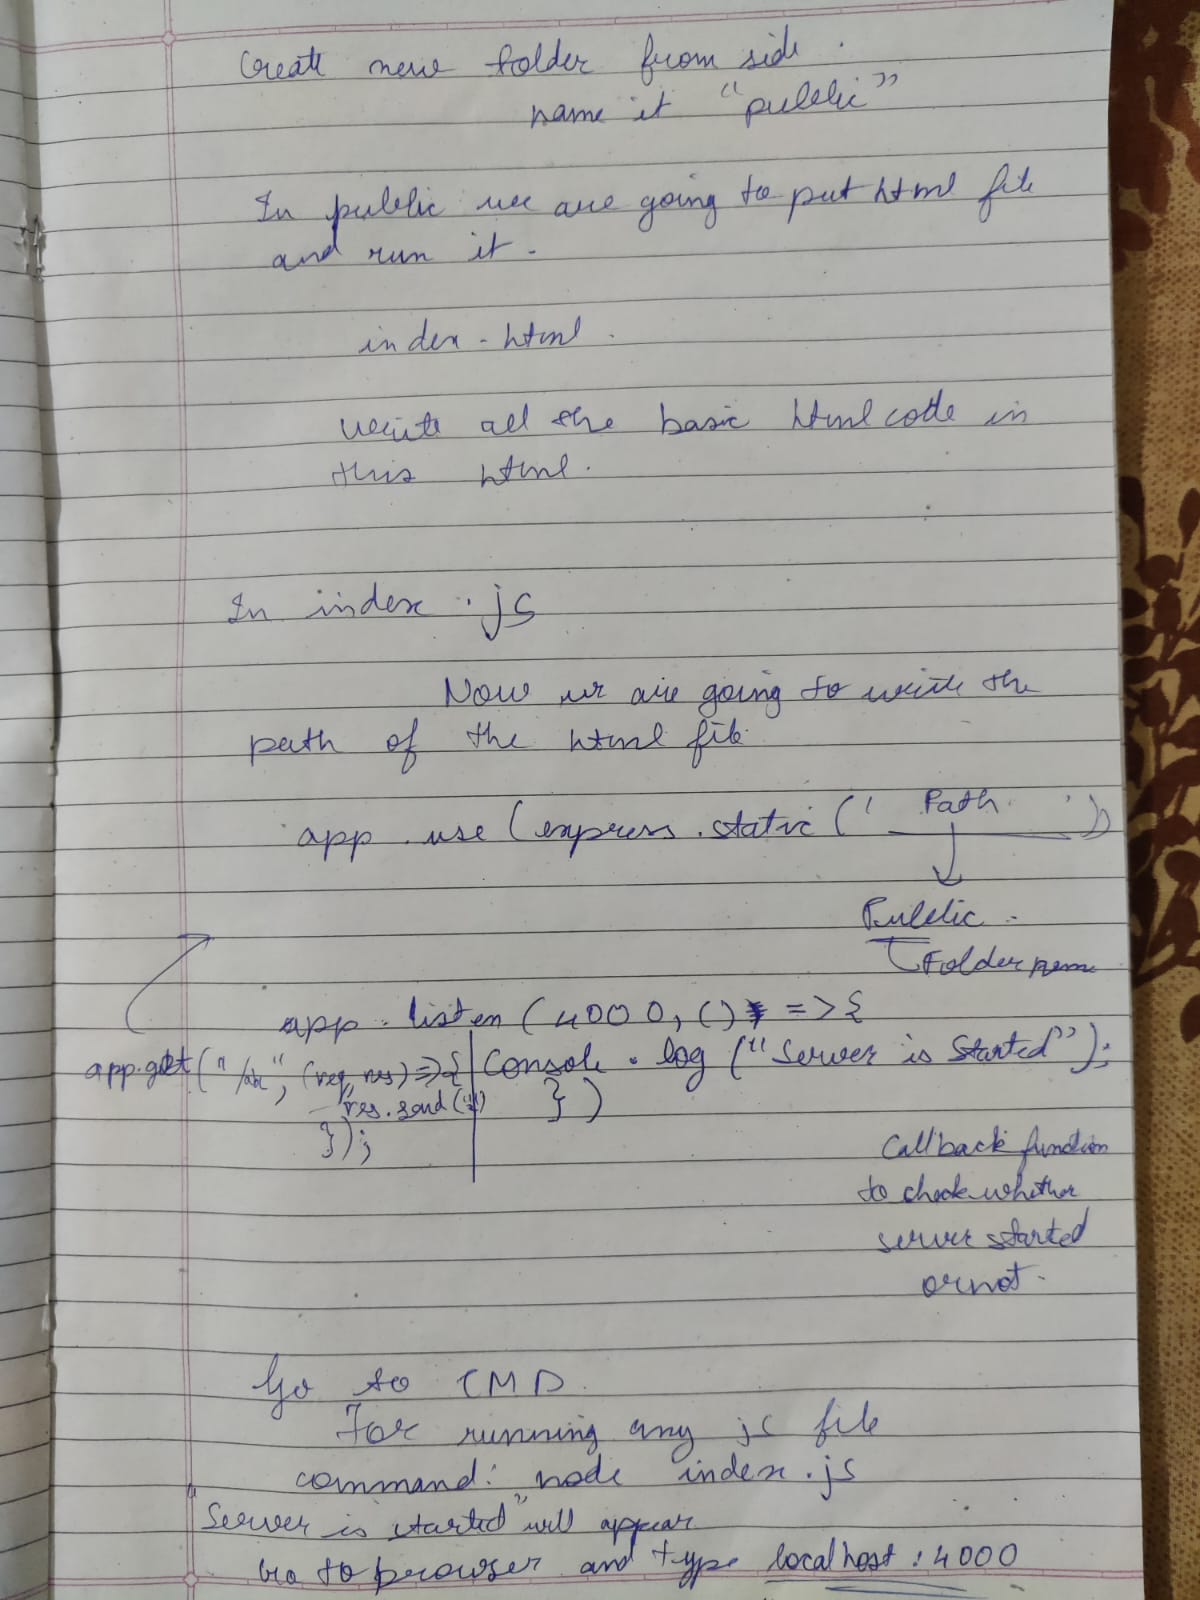 Create new folder from side.
name it "public"
In public we are going to put html file
and run it.
index.html.
write all the basic html code in
this html.
In index.js
Now we are going to write the
path of the html file
app.use(express.static(' Path. '))
Public.
Folder name
app.listen(4000, () => {
console.log("Server is Started");
})
app.get("/abc", (req, res) => {
res.send(" ")
});
Callback function
to check whether
server started
or not.
Go to CMD
For running any js file
command: node index.js
"Server is started" will appear
Go to browser and type localhost:4000